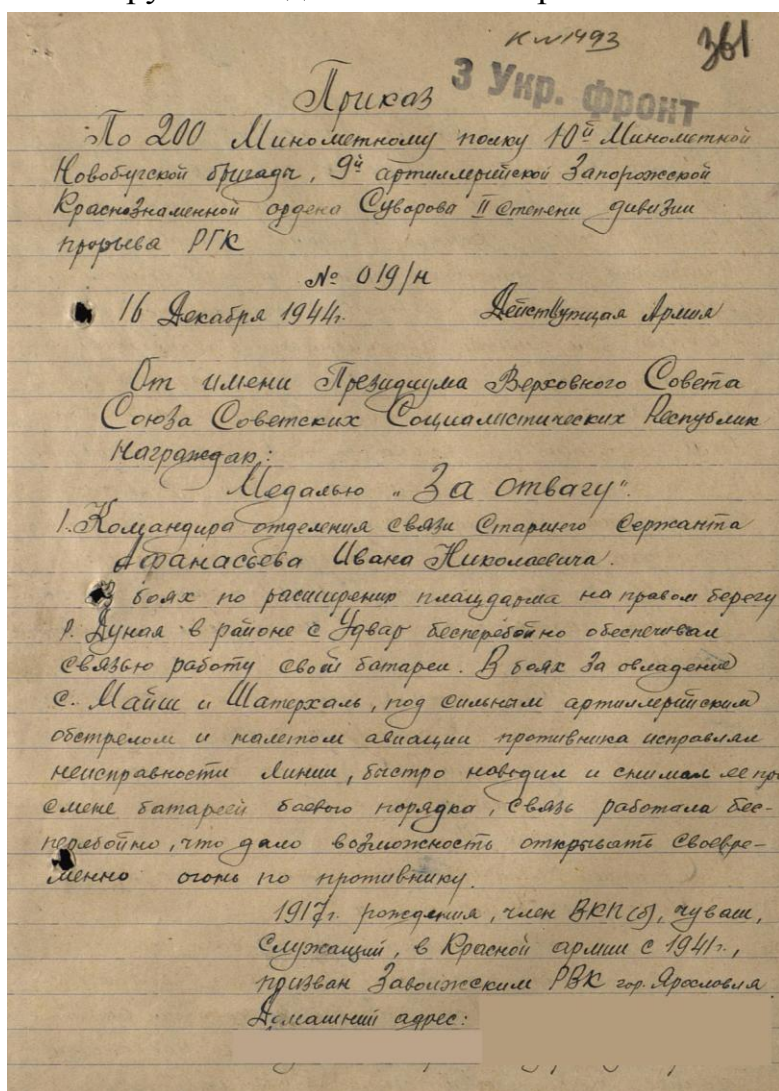 К №1493
361
3 Укр. фронт
Приказ
По 200 Минометному полку 10й Минометной
Новобугской бригады, 9й артиллерийской Запорожской
Краснознаменной ордена Суворова II Степени дивизии
прорыва РГК
№ 019/н
16 Декабря 1944г. Действующая Армия
От имени Президиума Верховного Совета
Союза Советских Социалистических Республик
Награждаю:
Медалью „За отвагу".
1. Командира отделения связи Старшего Сержанта
Афанасьева Ивана Николаевича.
В боях по расширению плацдарма на правом берегу
р. Дуная в районе с Удвар бесперебойно обеспечивал
связью работу свой батареи. В боях за овладение
с. Майш и Шатерхаль, под сильным артиллерийским
обстрелом и налетом авиации противника исправлял
неисправности линии, быстро наводил и снимал ее при
смене батареей боевого порядка, связь работала бес-
перебойно, что дало возможность открывать своевре-
менно огонь по противнику.
1917г. рождения, член ВКП(б), чуваш,
Служащий, в Красной армии с 1941г.,
призван Заволжским РВК гор. Ярославля
Домашний адрес: